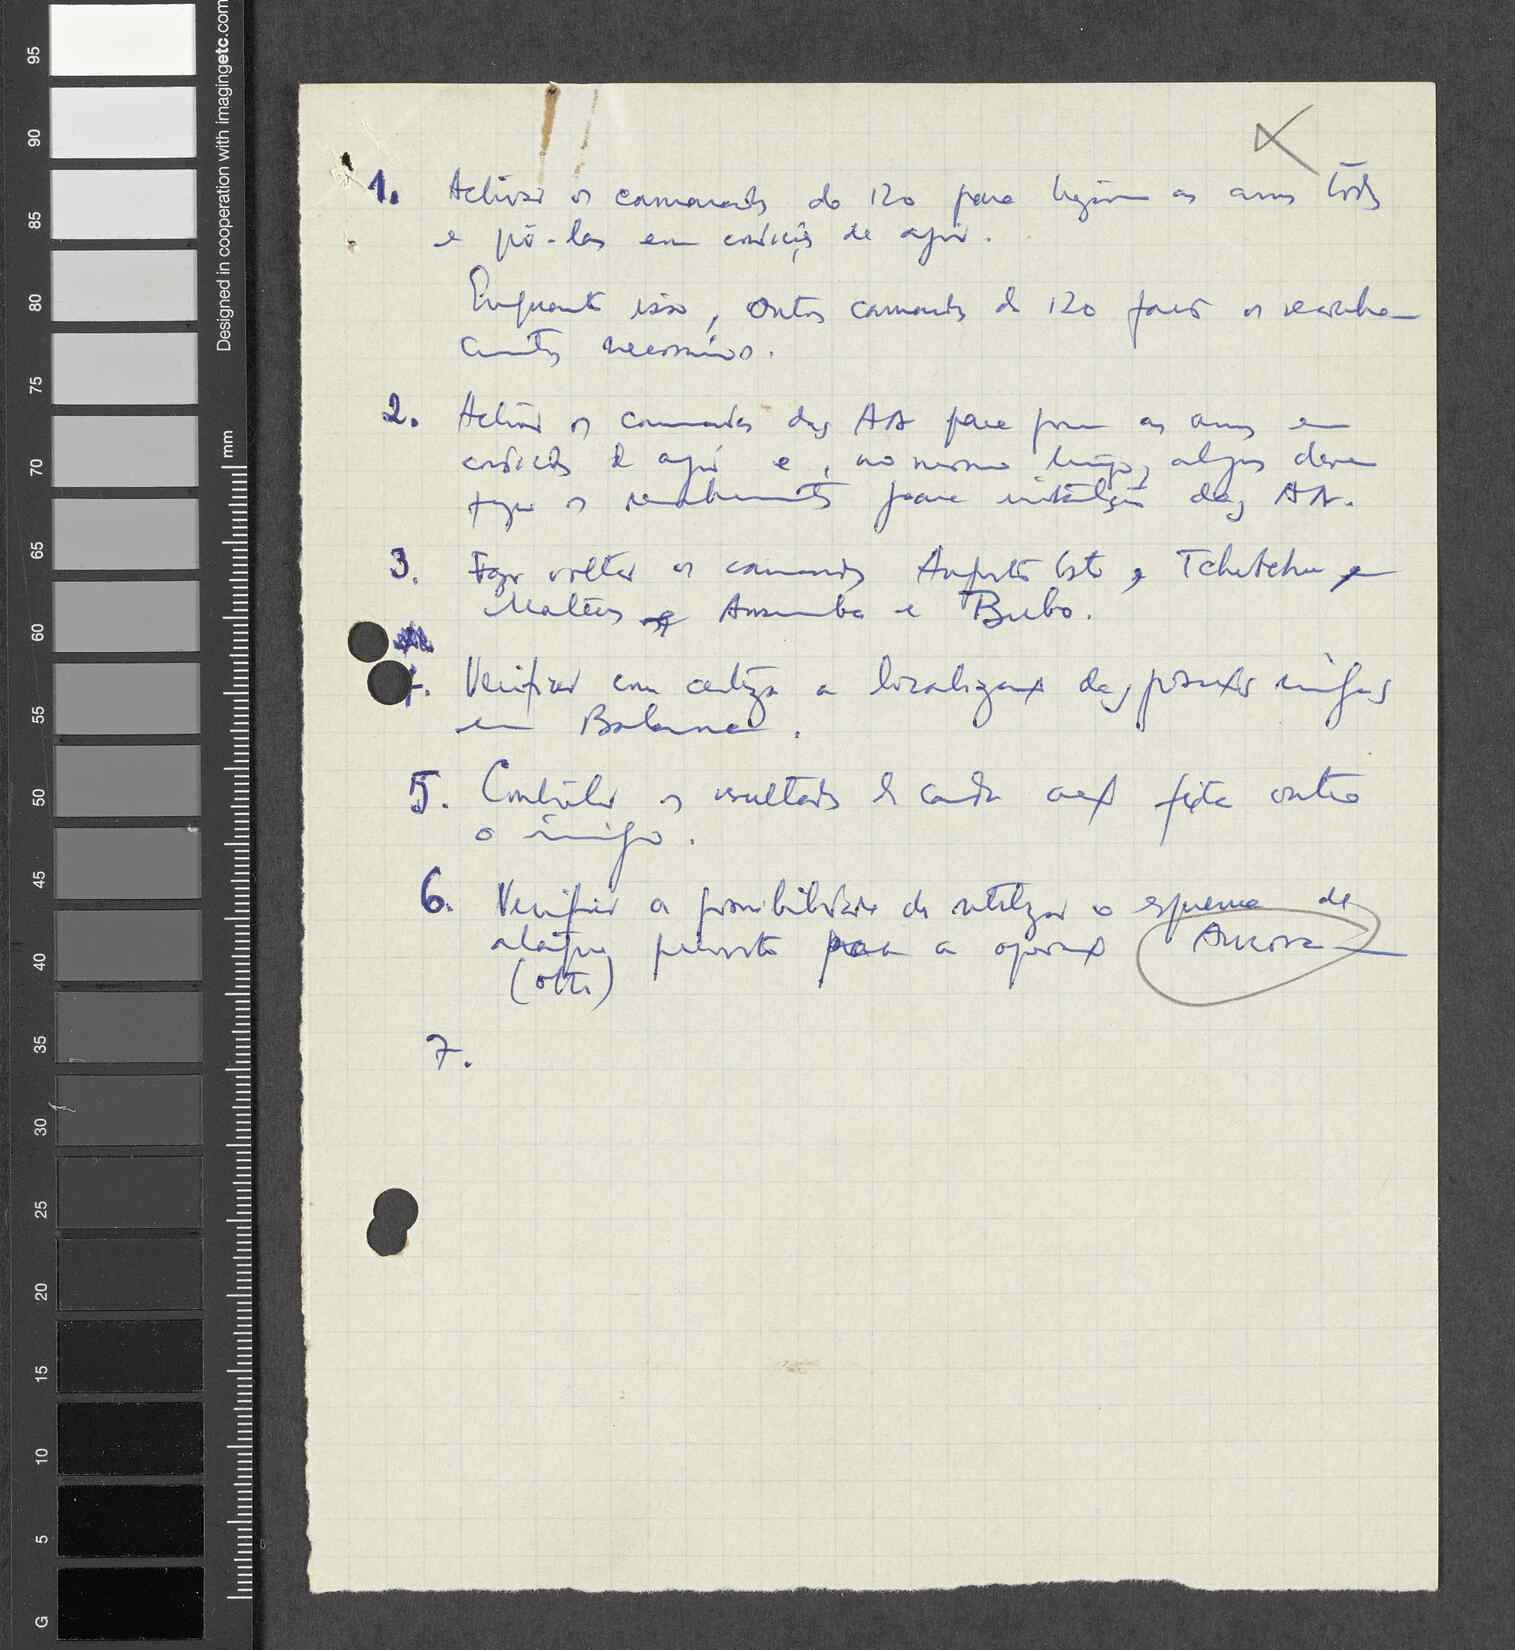 1. Activar os camaradas do 120 para as armas todas
e pô-las em condições de agir.
Enquanto isso, outros camaradas do 120 fazer os reconhe-
cimentos necessários.
2. Activar os camaradas das AA para pôr as armas em
condições de agir e, no mesmo tempo, alguns devem
fazer os reconhecimentos para instalação das AA.
3. Fazer voltar os camaradas Augusto Costa, Tchutchu,
Mateus, Ansumba e Bubo.
4. Verificar com certeza a localização das posições inimigas
em Balana.
5. Controlar os resultados de cada acção feita contra
o inimigo.
6. Verificar a possibilidade de utilizar o esquema de
ataque previsto para a operação
7.
Designed in cooperation with imagingetc.com
mm
95
90
85
80
75
70
65
60
55
50
45
40
35
30
25
20
15
10
5
G